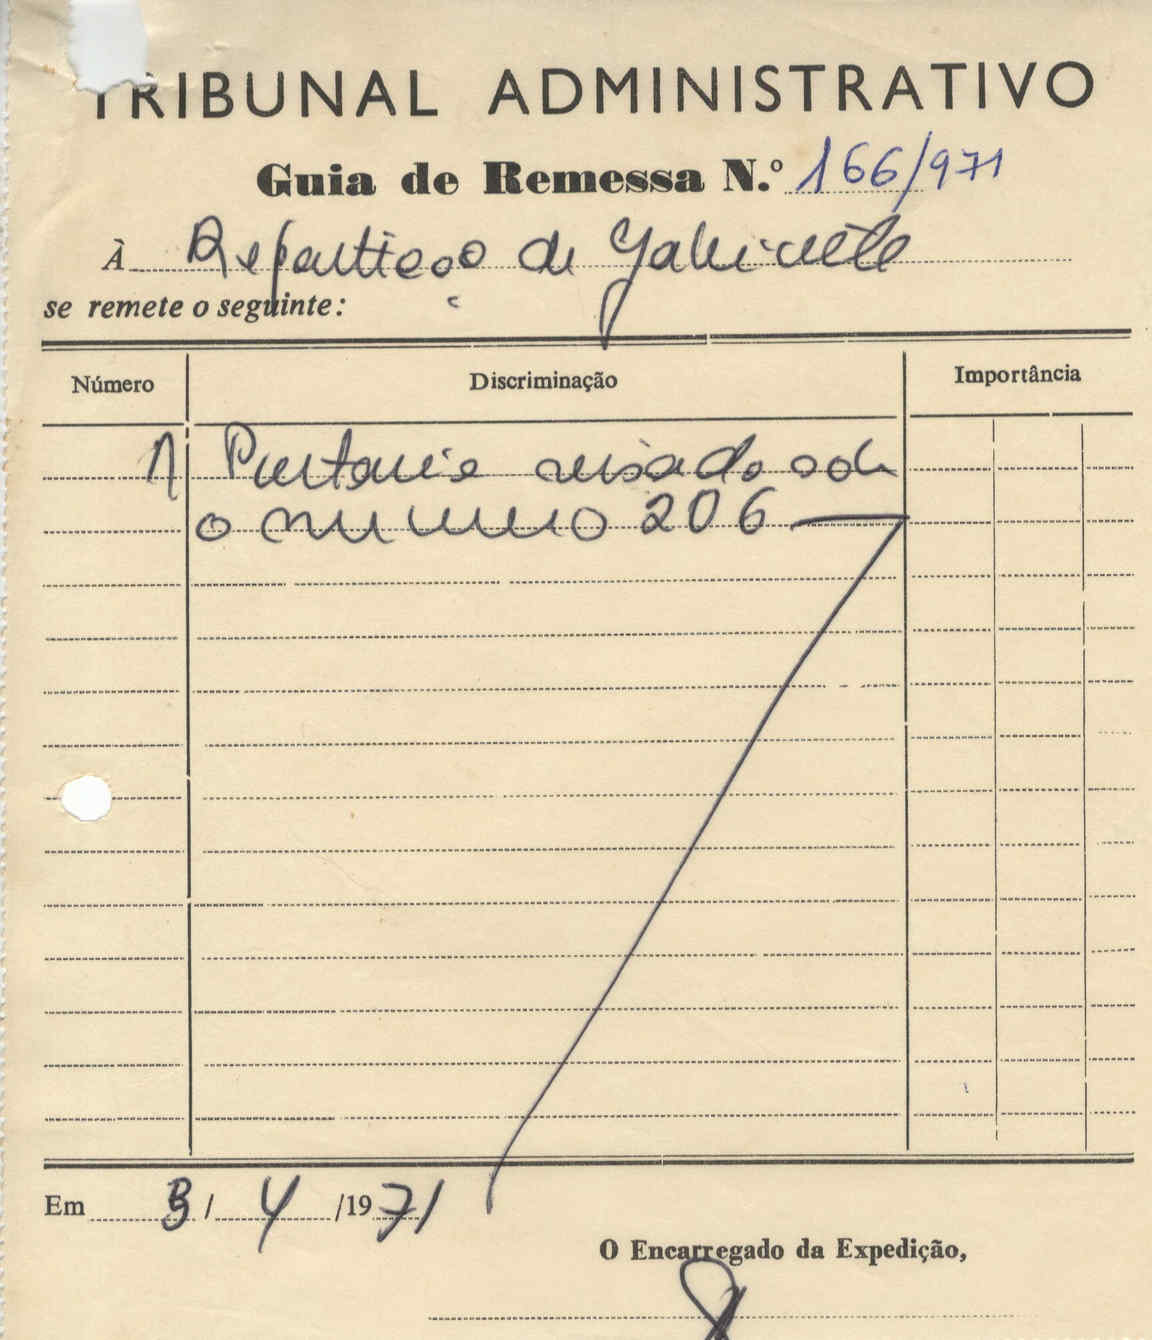 TRIBUNAL ADMINISTRATIVO
Guia de Remessa N.º 166/971
À Repartição de Gabinete
se remete o seguinte:
Número Discriminação Importância
1 Portaria visada sob
o numero 206
Em 3/4/1971
O Encarregado da Expedição,